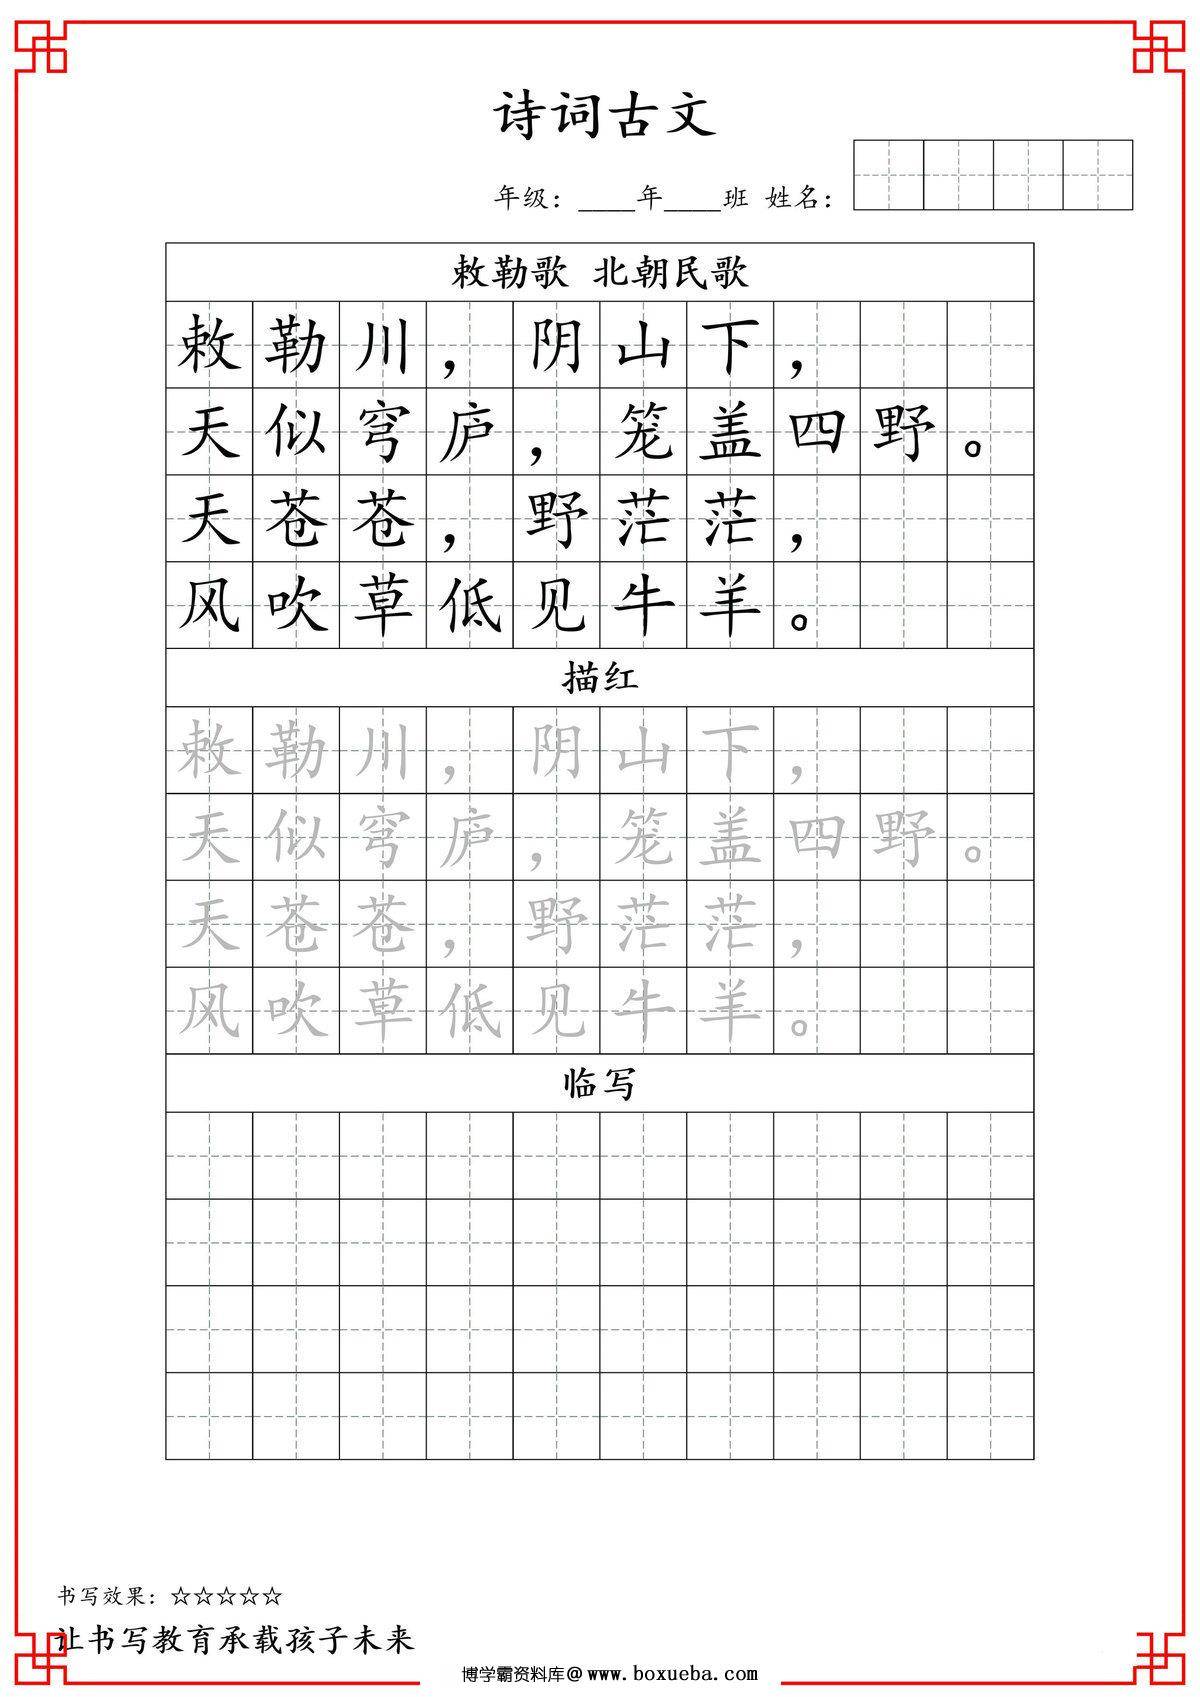 诗词古文
年级：____年____班 姓名：
敕勒歌 北朝民歌
敕勒川，阴山下，
天似穹庐，笼盖四野。
天苍苍，野茫茫，
风吹草低见牛羊。
描红
敕勒川，阴山下，
天似穹庐，笼盖四野。
天苍苍，野茫茫，
风吹草低见牛羊。
临写
书写效果：☆☆☆☆☆
让书写教育承载孩子未来
博学霸资料库@www.boxueba.com